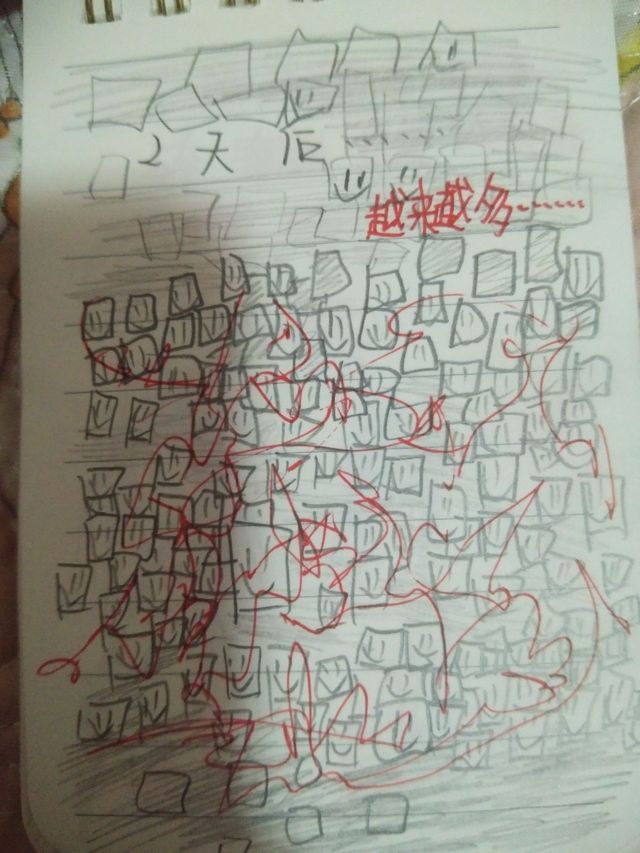 2天后......
越来越多......